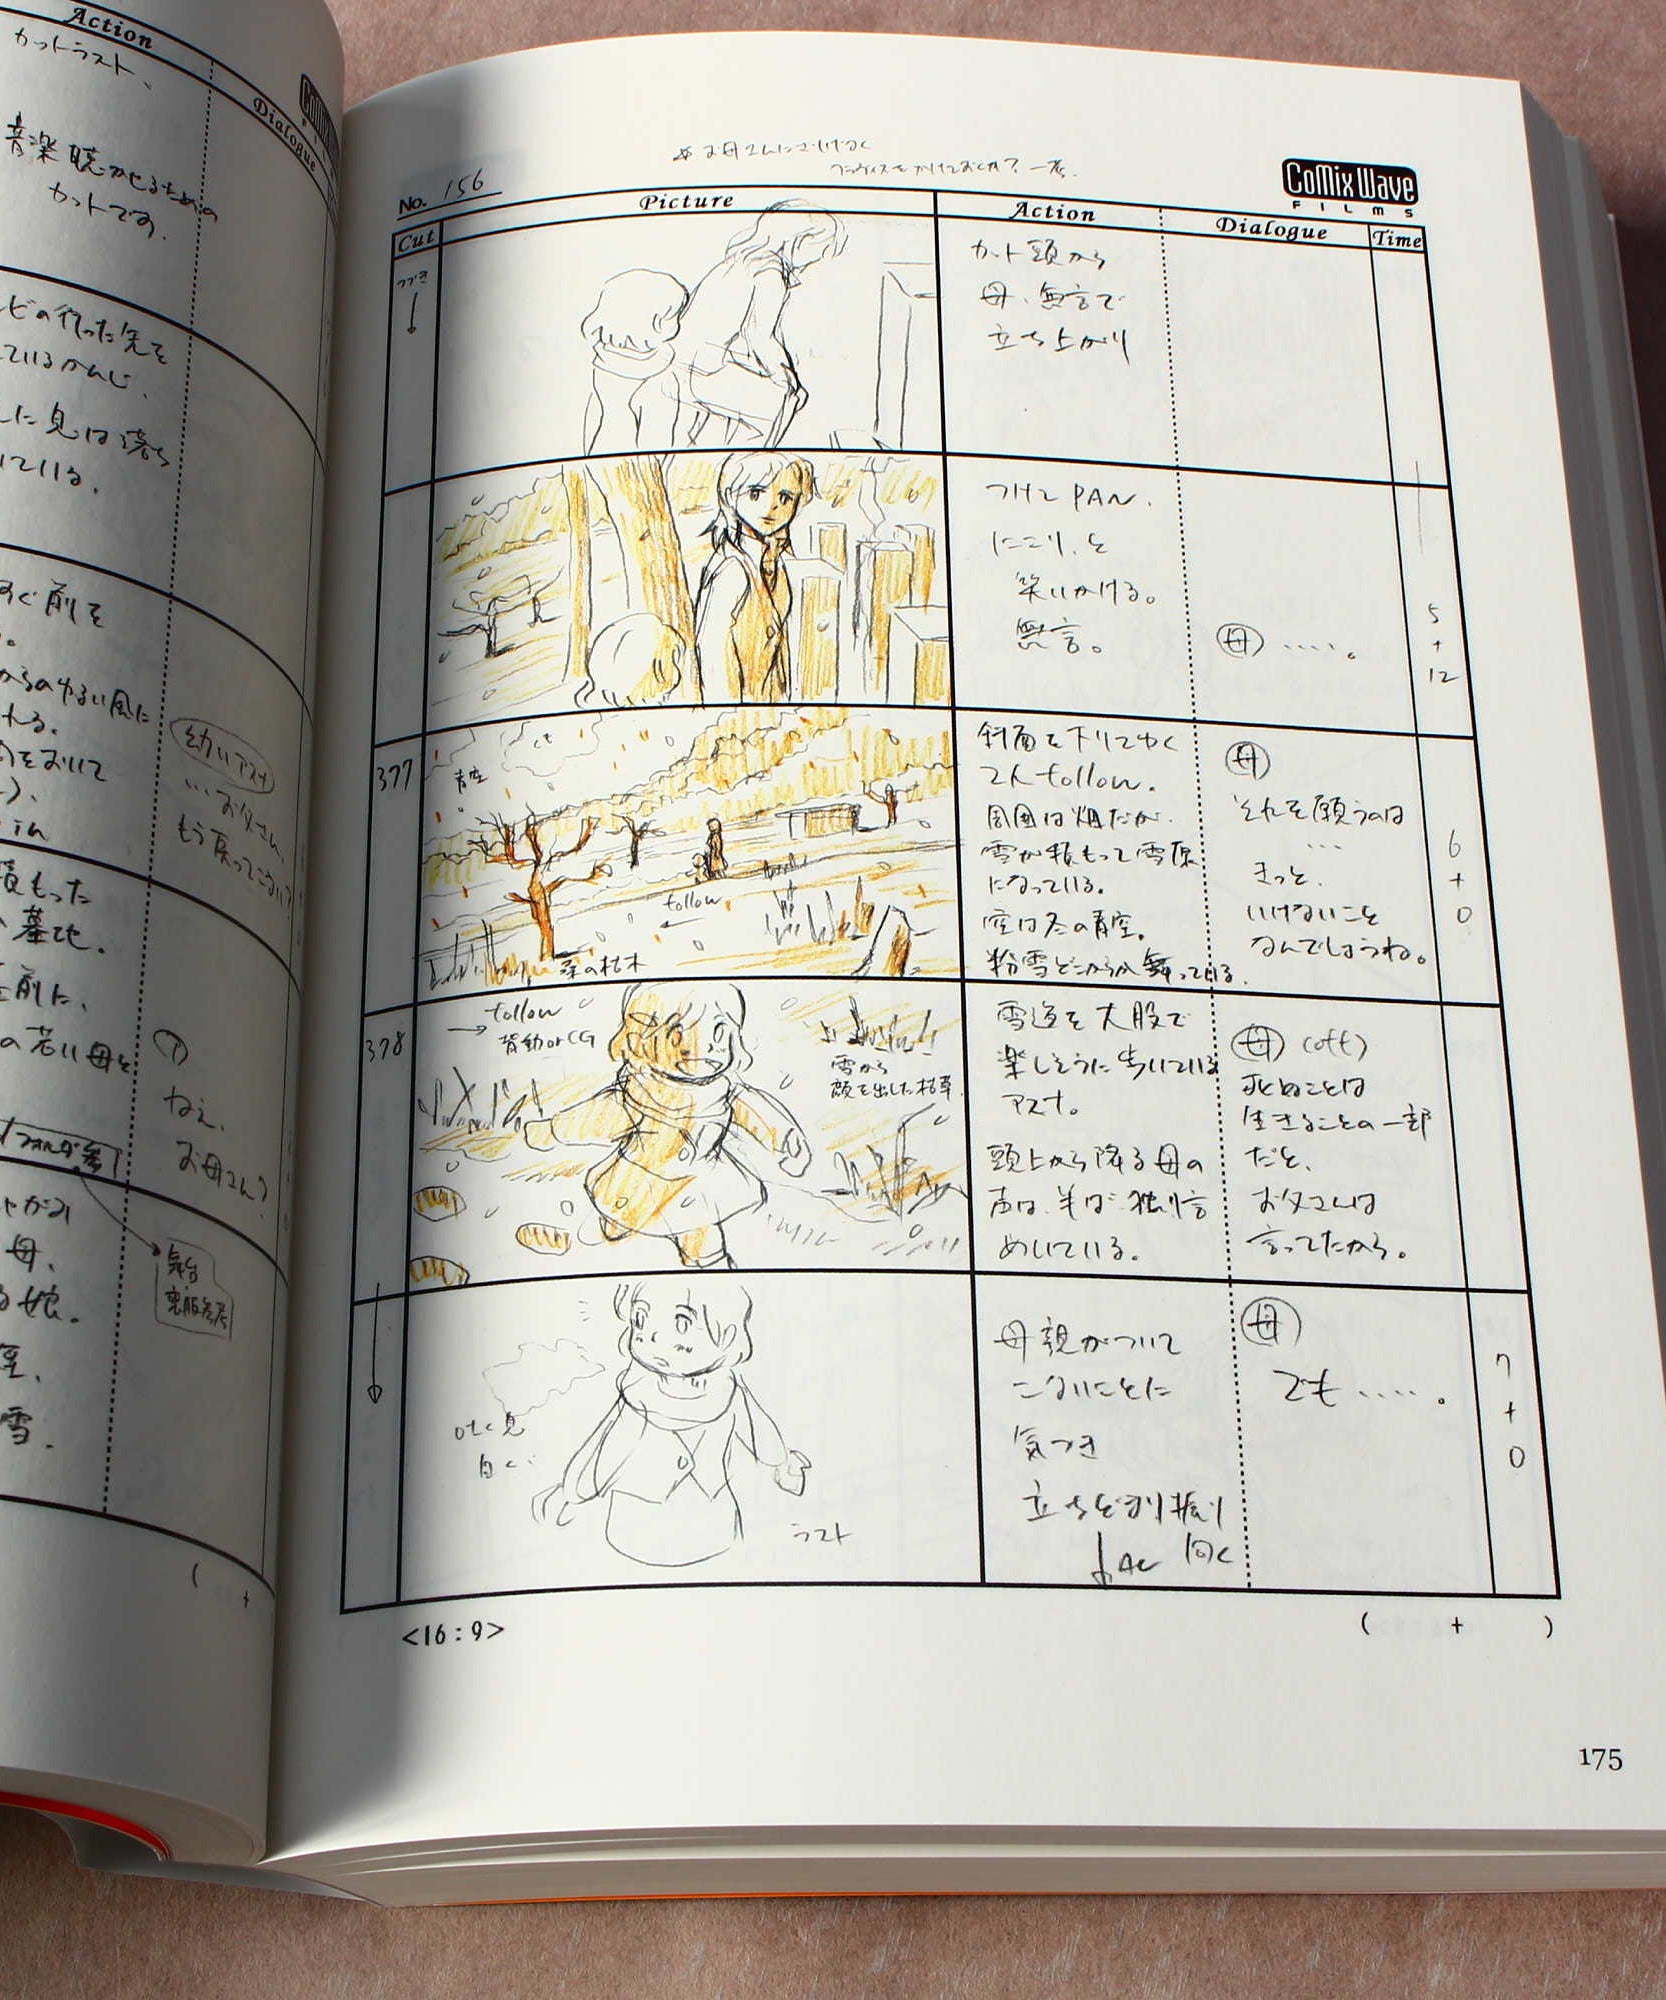 Action
カットラスト、
Dialogue
音楽聴かせるための
カットです。
ビの行った先を
ているかんじ、
した息は落ち
いている。
すぐ前を
からのゆるい風に
れる。
をおいて
in
幼いアスナ
…お父さん、
もう戻ってこない?
積もった
墓地。
前に、
の若い母と
ア
ねえ、
お母さん?
母、
る娘。
雪.
( +
No. 156
CoMix Wave
FILMS
Cut
Picture
Action
Dialogue
Time
つづき
カット頭から
母、無言で
立ち上がり
つけてPAN.
にこり、と
笑いかける。
無言。
母 …..。
5
+
12
377
青空
follow
桑の枯木
斜面を下りてゆく
2人follow.
周囲は畑だが、
雪が積もって雪原
になっている。
空は冬の青空。
粉雪どこからか舞っている.
母
それを願うのは
…
きっと、
いけないこと
なんでしょうね。
6
+
0
378
follow
背動orCG
雪から
顔を出した枯草
雪道を大股で
楽しそうに歩いている
アスナ。
頭上から降る母の
声は、半ば独り言
めいている。
母 (off)
死ぬことは
生きることの一部
だと、
お父さんは
言ってたから。
吐く息
白く
ラスト
母親がついて
こないことに
気づき
立ちどまり振り
向く
母
でも …..。
7
+
0
<16:9>
( + )
175